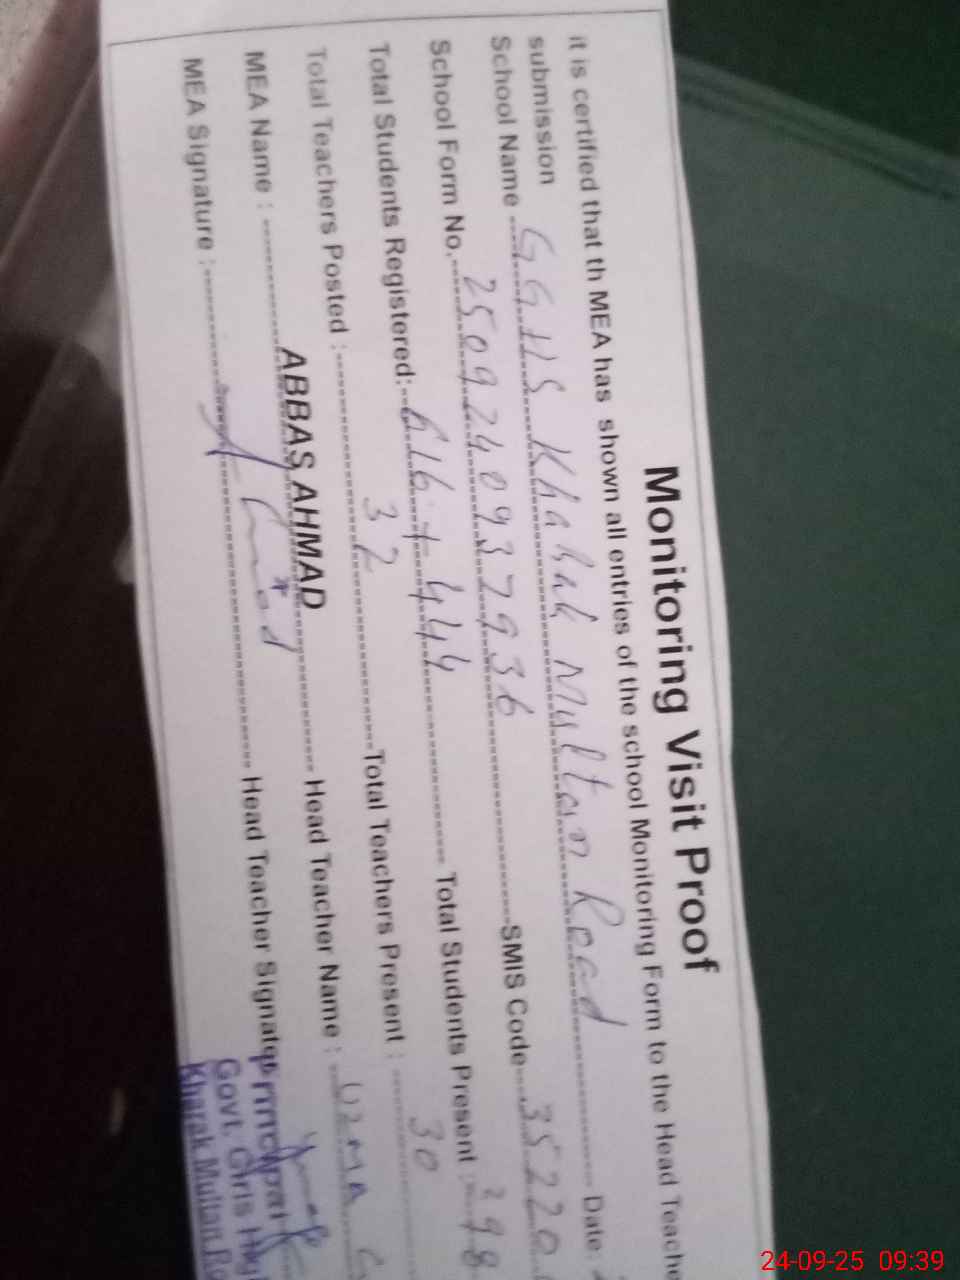 Monitoring Visit Proof
it is certified that th MEA has shown all entries of the school Monitoring Form to the Head Teache
submission
School Name GGHS Kharak Multan Road Date:
School Form No. 2509240937936 SMIS Code 35220
Total Students Registered: 616 + 444 Total Students Present 298
Total Teachers Posted : 32 Total Teachers Present : 30
MEA Name : ABBAS AHMAD Head Teacher Name : UZMA
MEA Signature : Head Teacher Signatu
Principal
Govt. Girls Hig
Kharak Multan Ro
24-09-25 09:39